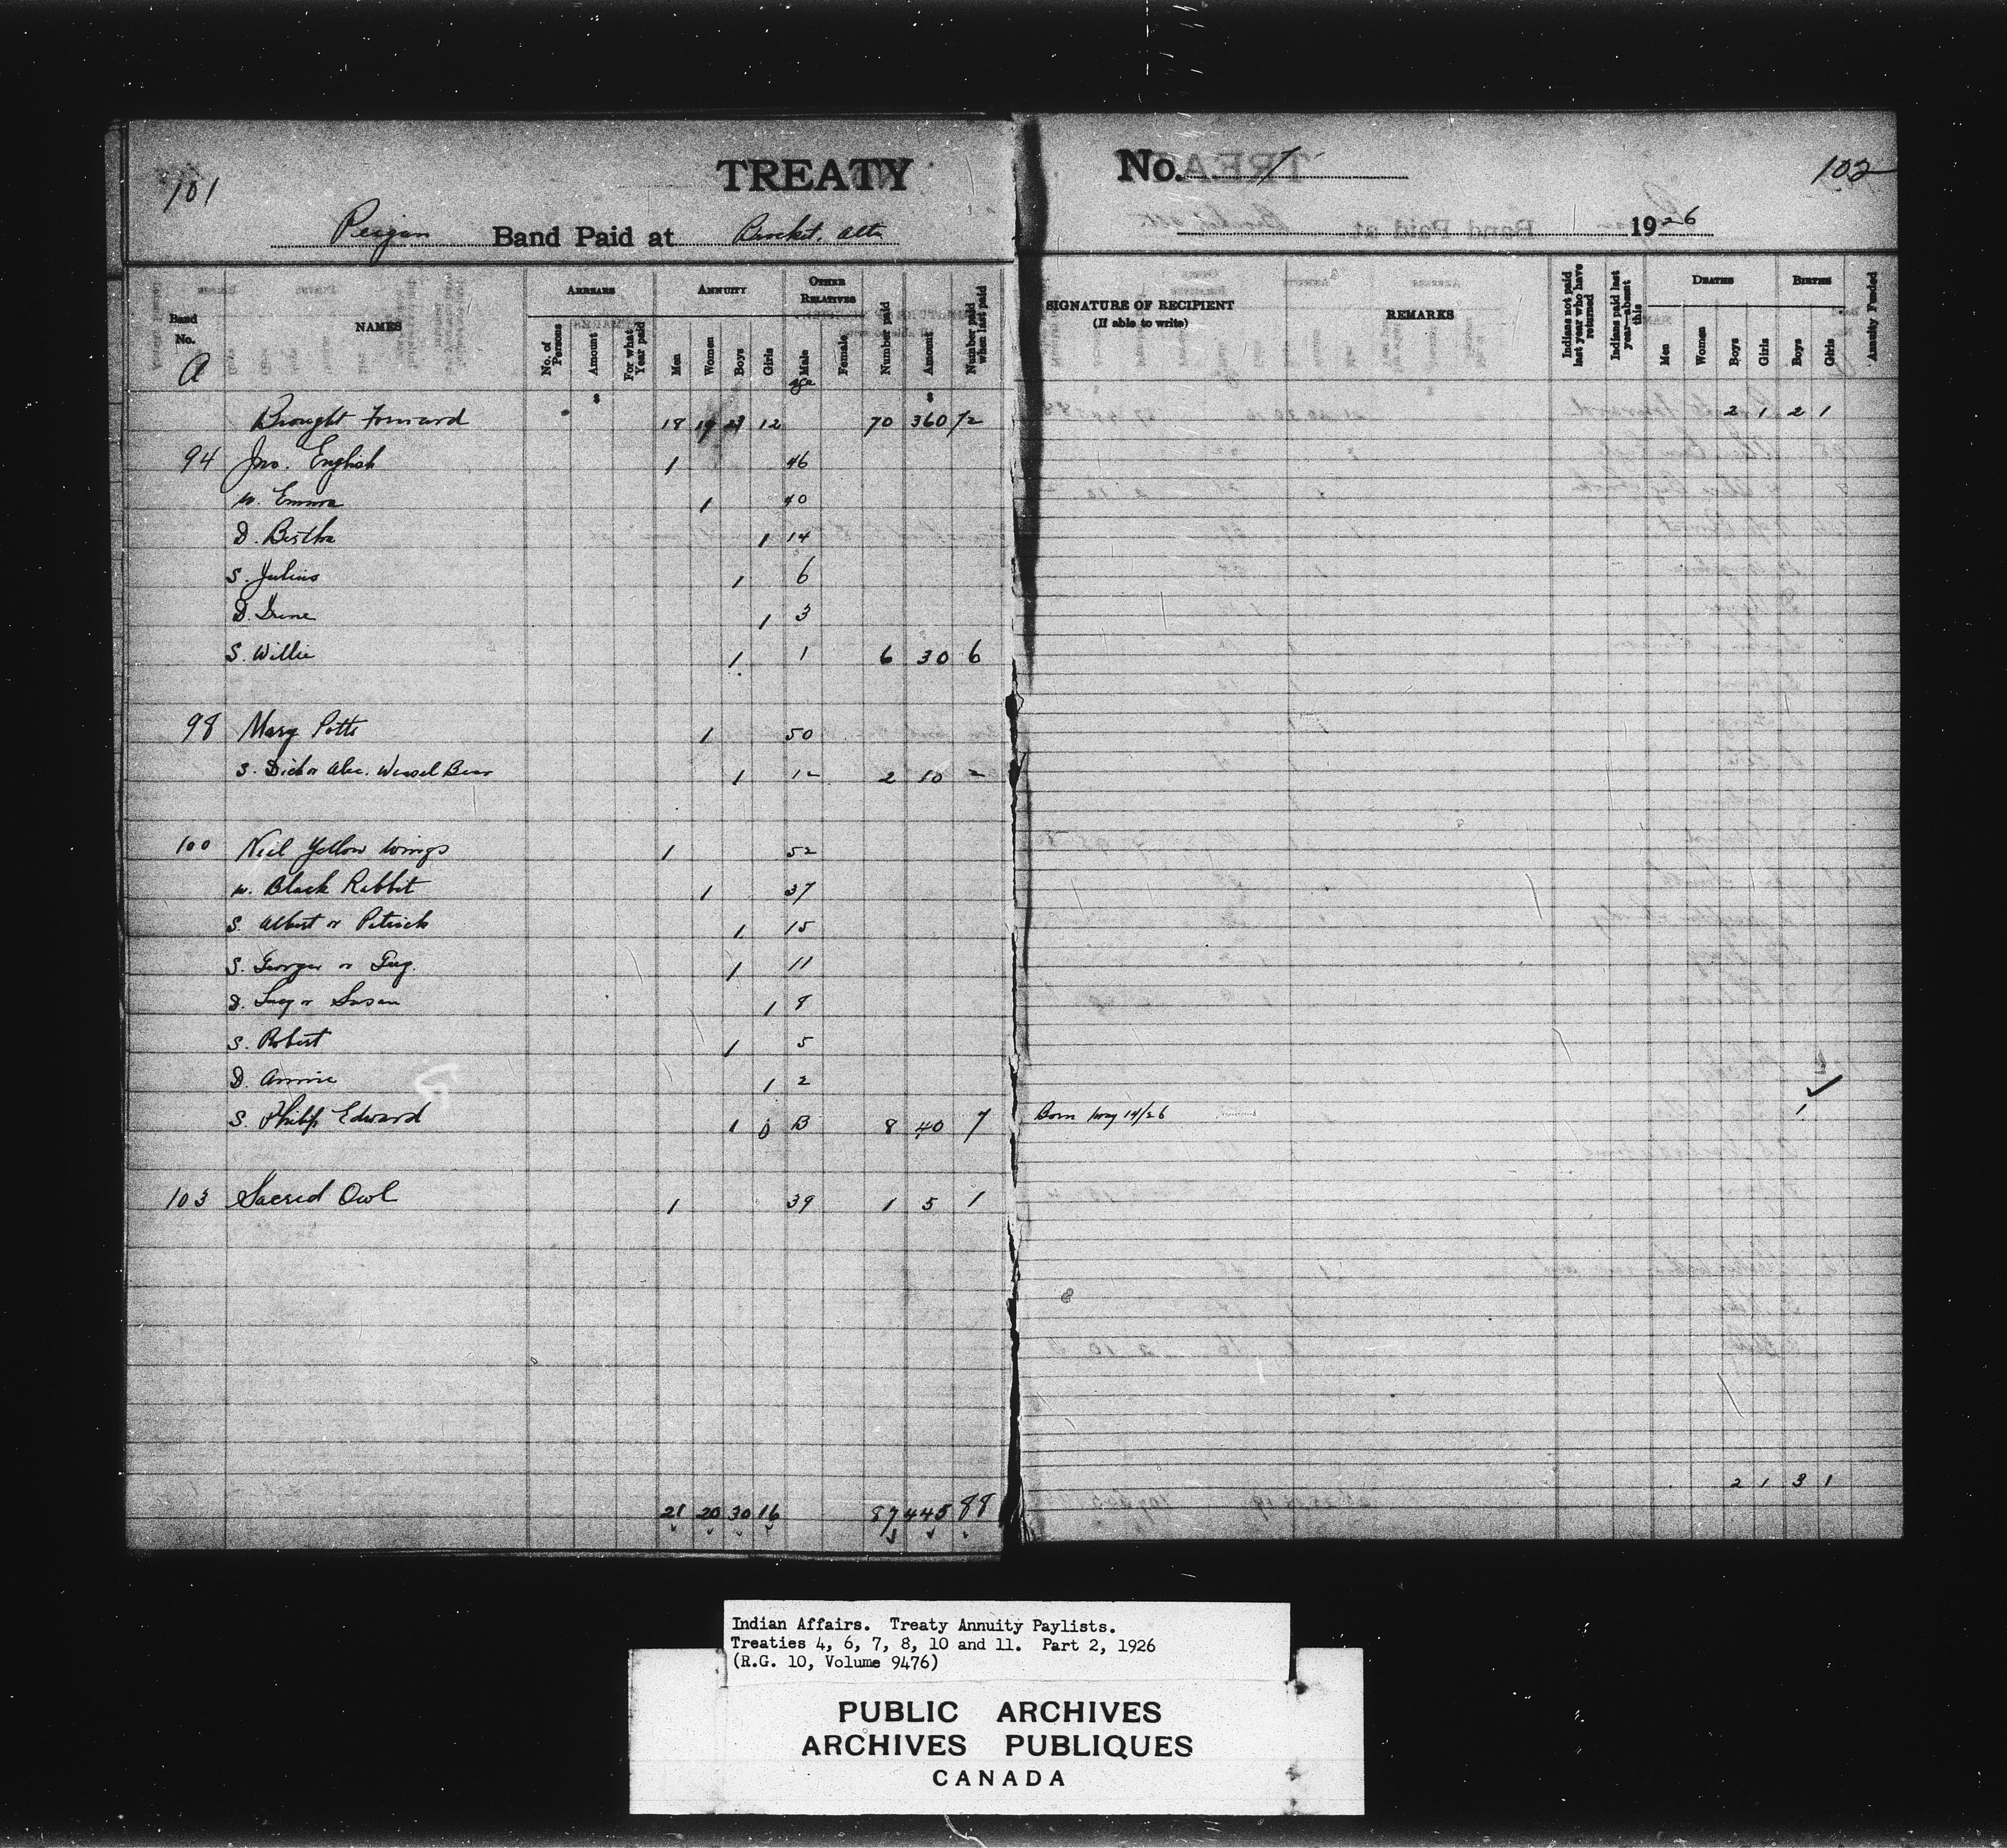 101
TREATY No. 7
102
Peigan Band Paid at Brocket, Alta
1926
Band No.
NAMES
ARREARS
No. of Persons
Amount
For what Year paid
ANNUITY
Men
Women
Boys
Girls
OTHER RELATIVES
Male
Female
Number paid
Amount
Number paid when last paid
SIGNATURE OF RECIPIENT
(If able to write)
REMARKS
Indians not paid last year who have returned
Indians paid last year—absent this
DEATHS
Men
Women
Boys
Girls
BIRTHS
Boys
Girls
Annuity Funded
A
age
$ $
Brought Forward 18 12 70 360 72 2 1 2 1
94 Jno. English 1 46
W. Emma 1 40
D. Bertha 1 14
S. Julius 1 6
D. Irene 1 3
S. Willie 1 1 6 30 6
98 Mary Potts 1 50
S. Dick or Alec. Weasel Bear 1 12 2 10 2
100 Neil Yellow Wings 1 52
W. Black Rabbit 1 37
S. Albert or Patrick 1 15
S. George or 1 11
D. Lucy or Susan 1 8
S. Robert 1 5
D. Annie 1 2
S. Philip Edward 1 0 B 8 40 7 Born May 14/26 1
103 Sacred Owl 1 39 1 5 1
2 1 3 1
21 20 30 16 87 445 88
Indian Affairs. Treaty Annuity Paylists.
Treaties 4, 6, 7, 8, 10 and 11. Part 2, 1926
(R.G. 10, Volume 9476)
PUBLIC ARCHIVES
ARCHIVES PUBLIQUES
CANADA